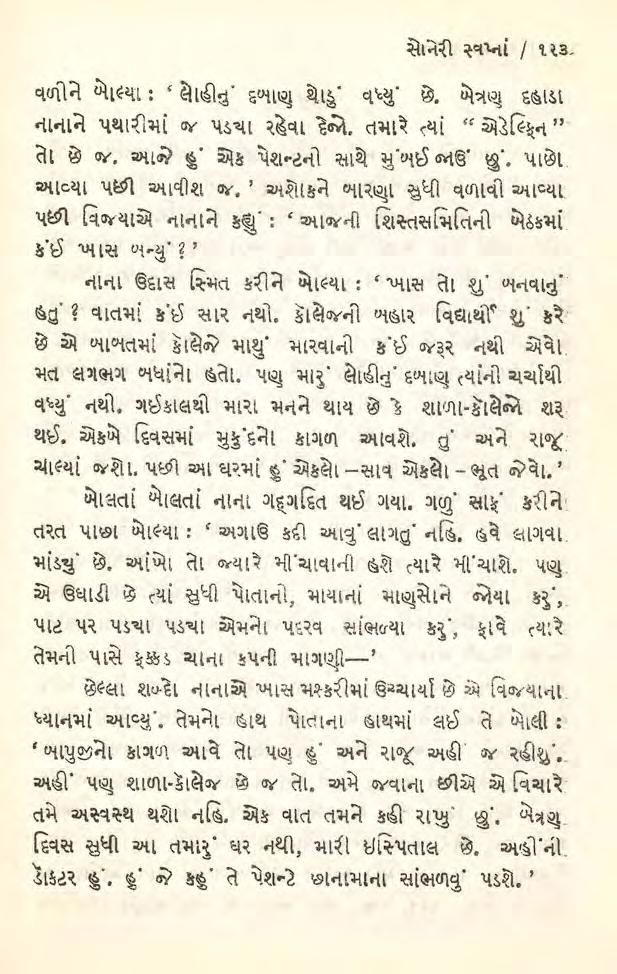 સોનેરી સ્વપ્નાં / ૧૨૩
વળીને બોલ્યા : ‘ લોહીનું દબાણ થોડું વધ્યું છે. બેત્રણ દહાડા
નાનાને પથારીમાં જ પડ્યા રહેવા દેજો. તમારે ત્યાં “ એડેલ્ફિન ”
તો છે જ. આજે હું એક પેશન્ટની સાથે મુંબઈ જાઉં છું. પાછો
આવ્યા પછી આવીશ જ. ’ અશોકને બારણા સુધી વળાવી આવ્યા
પછી વિજયાએ નાનાને કહ્યું : ‘ આજની શિસ્તસમિતિની બેઠકમાં
કંઈ ખાસ બન્યું ? ’
નાના ઉદાસ સ્મિત કરીને બોલ્યા : ‘ ખાસ તો શું બનવાનું
હતું ? વાતમાં કંઈ સાર નથી. કૉલેજની બહાર વિદ્યાર્થી શું કરે
છે એ બાબતમાં કૉલેજે માથું મારવાની કંઈ જરૂર નથી એવો
મત લગભગ બધાંનો હતો. પણ મારું લોહીનું દબાણ ત્યાંની ચર્ચાથી
વધ્યું નથી. ગઈકાલથી મારા મનને થાય છે કે શાળા-કૉલેજો શરૂ
થઈ. એકબે દિવસમાં મુકુંદનો કાગળ આવશે. તું અને રાજૂ
ચાલ્યાં જશો. પછી આ ઘરમાં હું એકલો – સાવ એકલો – ભૂત જેવો. ’
બોલતાં બોલતાં નાના ગદ્ગદિત થઈ ગયા. ગળું સાફ કરીને
તરત પાછા બોલ્યા : ‘ અગાઉ કદી આવું લાગતું નહિ. હવે લાગવા
માંડ્યું છે. આંખો તો જ્યારે મીંચાવાની હશે ત્યારે મીંચાશે. પણ
એ ઉઘાડી છે ત્યાં સુધી પોતાની, માયાનાં માણસોને જોયા કરું,
પાટ પર પડ્યા પડ્યા એમનો પદરવ સાંભળ્યા કરું, ફાવે ત્યારે
તેમની પાસે ફક્કડ ચાના કપની માગણી—’
છેલ્લા શબ્દો નાનાએ ખાસ મશ્કરીમાં ઉચ્ચાર્યા છે એ વિજયાના
ધ્યાનમાં આવ્યું. તેમનો હાથ પોતાના હાથમાં લઈ તે બોલી :
‘ બાપુજીનો કાગળ આવે તો પણ હું અને રાજૂ અહીં જ રહીશું.
અહીં પણ શાળા-કૉલેજ છે જ તો. અમે જવાના છીએ એ વિચારે
તમે અસ્વસ્થ થશો નહિ. એક વાત તમને કહી રાખું છું. બેત્રણ
દિવસ સુધી આ તમારું ઘર નથી, મારી ઇસ્પિતાલ છે. અહીંની
ડૉક્ટર હું. હું જે કહું તે પેશન્ટે છાનામાના સાંભળવું પડશે. ’